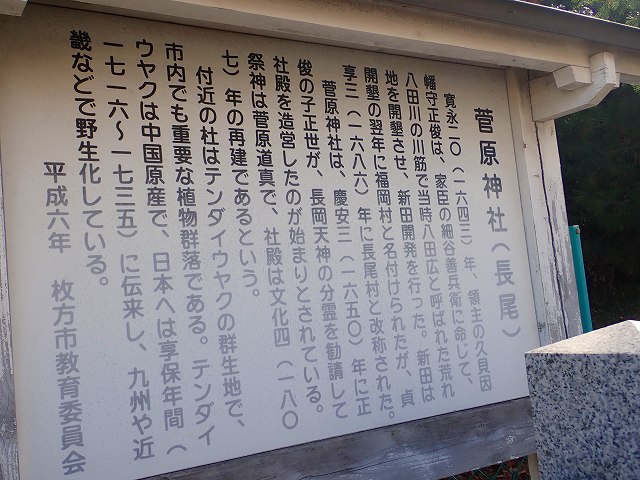 菅原神社（長尾）
寛永二〇（一六四三）年、領主の久貝因
幡守正俊は、家臣の細谷善兵衛に命じて、
八田川の川筋で当時八田広と呼ばれた荒れ
地を開墾させ、新田開発を行った。新田は
開墾の翌年に福岡村と名付けられたが、貞
享三（一六八六）年に長尾村と改称された。
菅原神社は、慶安三（一六五〇）年に正
俊の子正世が、長岡天神の分霊を勧請して
社殿を造営したのが始まりとされている。
祭神は菅原道真で、社殿は文化四（一八〇
七）年の再建であるという。
付近の杜はテンダイウヤクの群生地で、
市内でも重要な植物群落である。テンダイ
ウヤクは中国原産で、日本へは享保年間（
一七一六〜一七三五）に伝来し、九州や近
畿などで野生化している。
平成六年　枚方市教育委員会